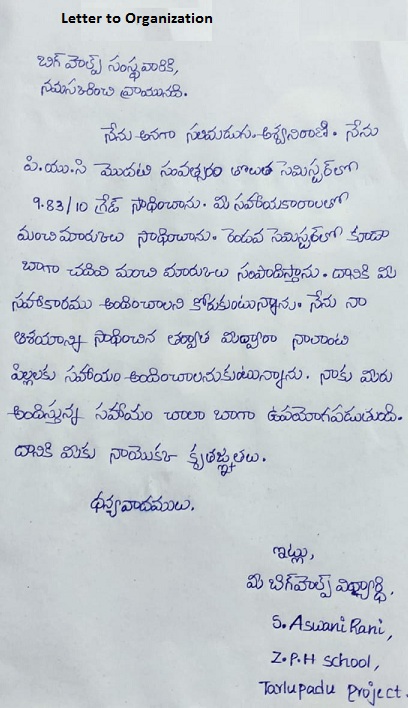 Letter to Organization
బిగ్ హెల్ప్ సంస్థవారికి,
నమస్కరించి వ్రాయునది.
నేను అనగా సలుమడుగు. అశ్వనిరాణి. నేను
పి.యు.సి మొదటి సంవత్సరం తొలత సెమిస్టర్‌లో
9.83/10 గ్రేడ్ సాధించాను. మీ సహాయకారాలతో
మంచి మార్కులు సాధించాను. రెండవ సెమిస్టర్‌లో కూడా
బాగా చదివి మంచి మార్కులు సంపాదిస్తాను. దానికి మీ
సహాకారము అందించాలని కోరుకుంటున్నాను. నేను నా
ఆశయాన్ని సాధించిన తర్వాత మీద్వారా నాలాంటి
పిల్లలకు సహాయం అందించాలనుకుంటున్నాను. నాకు మీరు
అందిస్తున్న సహాయం చాలా బాగా ఉపయోగపడుతుంది.
దానికి మీకు నాయొక్క కృతజ్ఞతలు.
ధన్యవాదములు.
ఇట్లు,
మీ బిగ్‌హెల్ప్ విద్యార్థి,
S. Aswani Rani,
Z.P.H school,
Tarlupadu project.